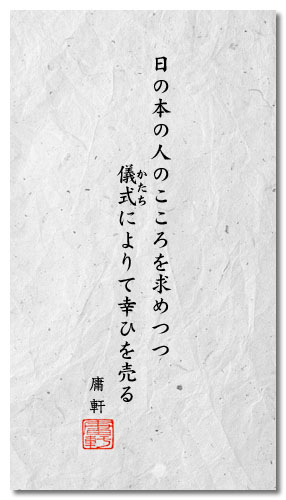 日の本の人のこころを求めつつ
儀式によりて幸ひを売る
かたち
庸軒
庸軒